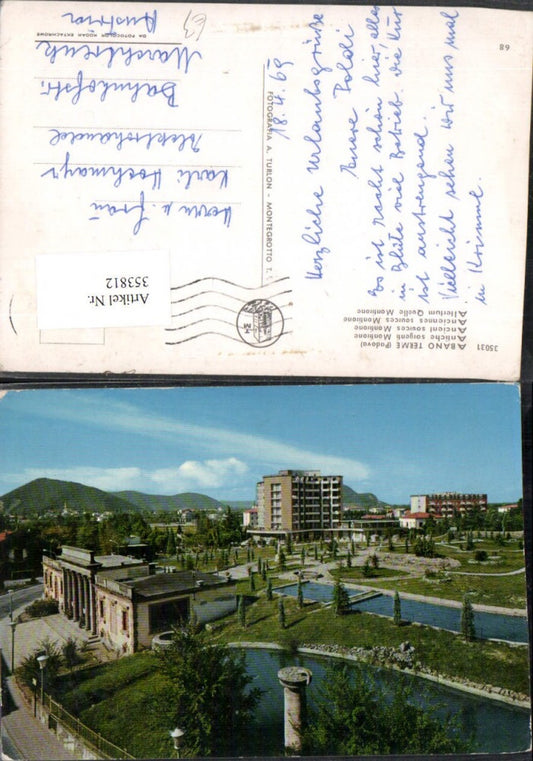 35031
ABANO TERME (Padova)
Antiche sorgenti Montirone
Ancient sources Montirone
Anciennes sources Montirone
Alterium Quelle Montirone
68
18.4.69
Herzliche Urlaubsgrüße
Es ist recht schön hier, alles
in Blüte viel Betrieb. die Kur
ist anstrengend.
Vielleicht sehen wir uns mal
in Krimml.
FOTOGRAFIA A. TURLON - MONTEGROTTO T.
Herrn u. Frau
Karli Hochmayr
Elektrohandel
Bahnhofstr.
Marchtrenk
Austria
DA FOTOCOLOR KODAK EKTACHROME
Artikel Nr.
353812